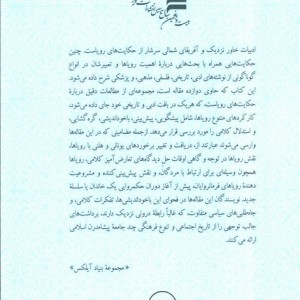 ادبیات خاور نزدیک و آفریقای شمالی سرشار از حکایت‌های رویاست. چنین
حکایت‌هایی همراه با بحث‌هایی دربارهٔ اهمیت رویاها و تعبیرشان در انواع
گوناگونی از نوشته‌های ادبی، تاریخی، فلسفی، مذهبی، و پزشکی شرح داده می‌شود.
این کتاب که حاوی دوازده مقاله است، مجموعه‌ای از مطالعات دقیق دربارهٔ
حکایت‌های رویاست، که هریک در بافت ادبی و تاریخی خود جای داده می‌شود،
کارکردهای متنوع رویاها، شامل پیشگویی، پیش‌بینی، باخوداندیشی، گره‌گشایی،
و استدلال کلامی را مورد بررسی قرار می‌دهد. ازجمله مضامینی که در این مقاله‌ها
وارسی می‌شوند عبارتند از، دریافت و تغییر برخوردهای یونانی و هلنی با رویاها،
نقش رویاها در توجه و گاهی اوقات حل دیدگاه‌های تعارض‌آمیز کلامی، رویاها
همچون وسیله‌ای برای ارتباط با مردگان، و نقش پیش‌بینی‌کننده و مشروعیت
دهندهٔ رویاهای فرمانروایان، پیش از آغاز دوران حکمروایی یک خاندان یا سلسلهٔ
جدید. نویسندگان این مقاله‌ها در فحوای این باخوداندیشی‌ها، تفکرات کلامی، و
جاه‌طلبی‌های سیاسی متفاوت، که غالباً رابطهٔ درونی نزدیک دارند، برداشت‌های
جالب توجهی را از تاریخ اجتماعی و تنوع فرهنگی چند جامعهٔ پیشامدرن اسلامی
ارائه می‌کنند.
«مجموعهٔ بنیاد آیلکس»